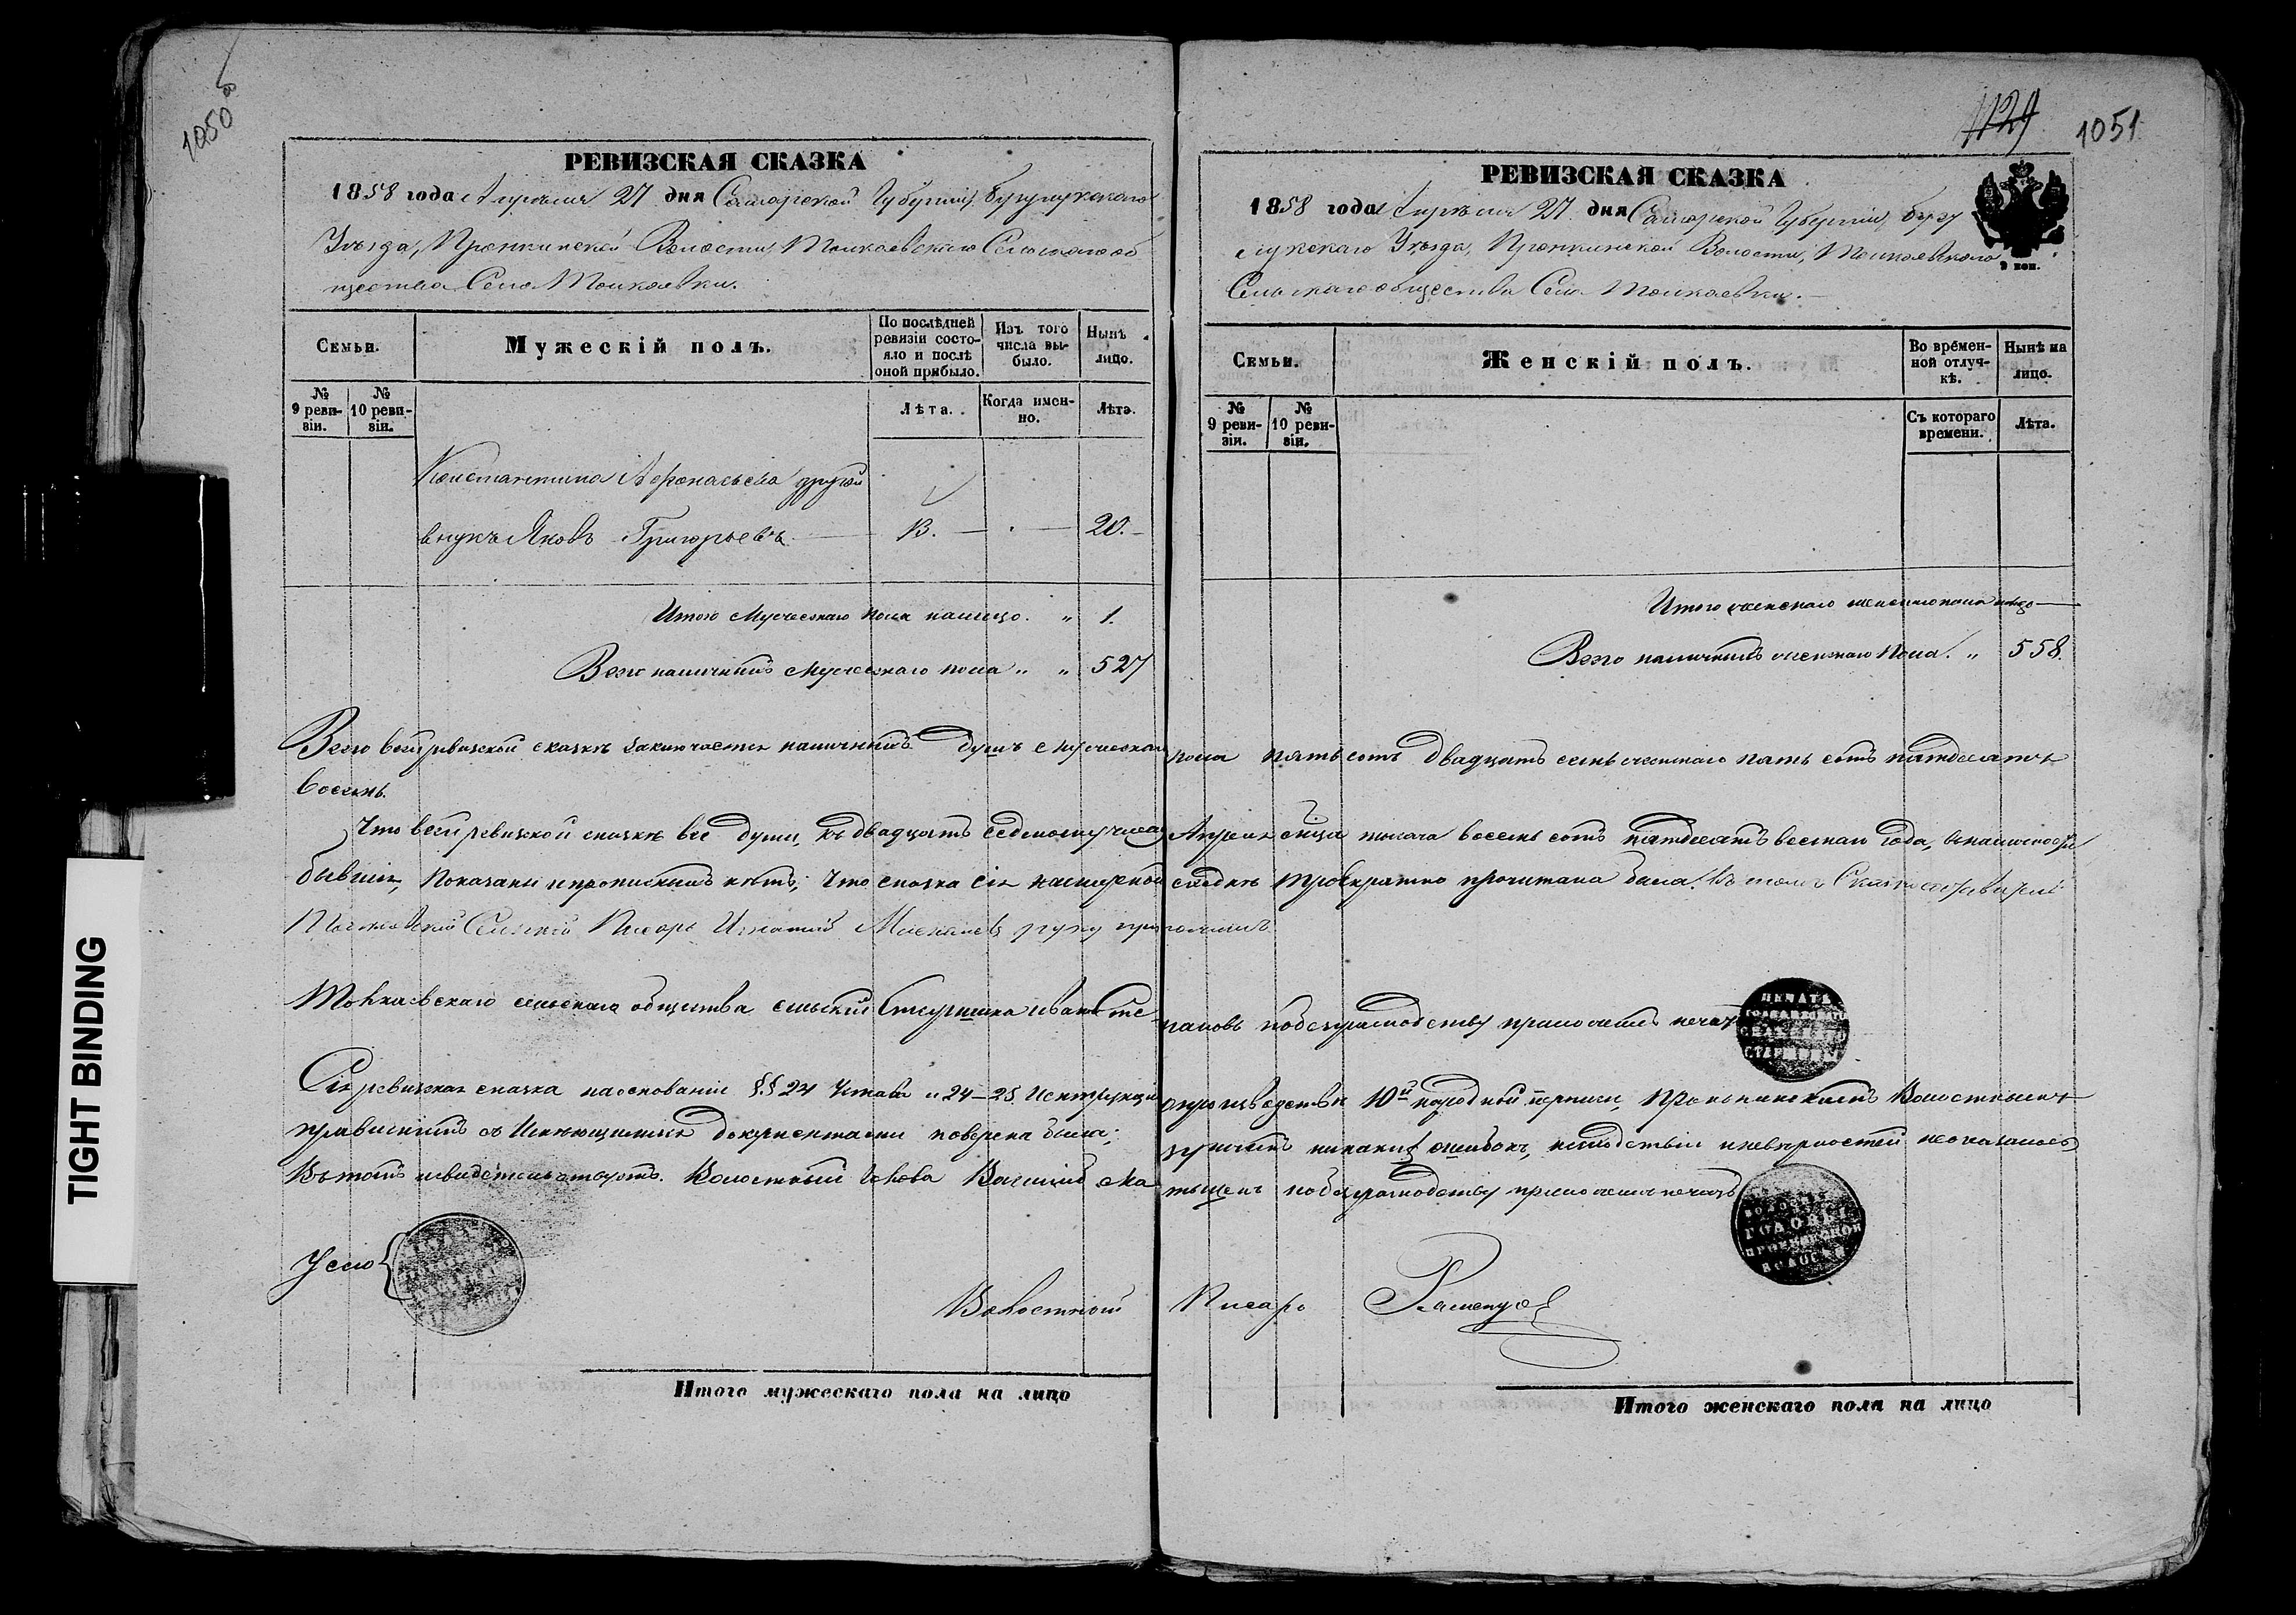 1050 об
РЕВИЗСКАЯ СКАЗКА
1858 года Апреля 27 дня Самарской Губернии, Бузулукскаго
Уезда, Пронкинской Волости, Толкаевскаго Сельскаго об
щества Села Толкаевки.
Семьи.
Мужескій полъ.
По послѣдней ревизіи состо-
яло и послѣ оной прибыло.
Изъ того числа вы-
было.
Нынѣ лицо.
№ 9 реви-
зіи.
№ 10 реви-
зіи.
Лѣта.
Когда имен-
но.
Лѣта.
Константина Афонасьева другой
внукъ Яковъ Григорьевъ. — 13. — · — 20. —
Итого Мужескаго пола налицо. „ 1.
Всего наличныхъ Мужескаго пола „ „ 527
1129 1051
РЕВИЗСКАЯ СКАЗКА
1858 года Апреля 27 дня Самарской Губернии, Бузу
лукскаго Уезда, Пронкинской Волости, Толкаевскаго
9 коп.
Сельскаго общества Села Толкаевки. —
Семьи.
Женскій полъ.
Во времен-
ной отлуч-
кѣ.
Нынѣ на лицо.
№ 9 реви-
зіи.
№ 10 реви-
зіи.
Съ котораго времени.
Лѣта.
Итого женскаго пола —
Всего наличныхъ женскаго пола. „ 558.
Всего в сей ревизской сказкѣ заключается наличныхъ душъ Мужескаго пола пять сотъ двадцать семь женскаго пять сотъ пятдесятъ
восемь.
Что в сей ревизской сказкѣ все души, къ двадцать седьмому числу Апреля м̃ца тысяча восемь сотъ пятдесятъ восьмаго года, в наличности
бывшія, показаны и прописныхъ нѣтъ; что сказка сія на мирской сходкѣ троекратно прочитана была. Въ томъ
Толкаевский Сельский Писарь Игнатий руку приложилъ
Толкаевскаго сельскаго общества сельский Старшина Иванъ Сте-
пановъ по безграмотству приложилъ печать
ПЕЧАТЬ ТОЛКАЕВСКАГО СЕЛЬСКАГО СТАРШИНЫ
Сія ревизская сказка на основаніи §§ 24 Устава и 24–25 Инструкціи о производствѣ 10й народной переписи, Пронкинскимъ Волостнымъ
правленіемъ съ Имеющимися документами поверена была; причемъ никакихъ ошибокъ, и неверностей неоказалось
Въ томъ и свидетельствуютъ. Волостный Голова Василий по безграмотству приложилъ печать
ВОЛОСТНАГО ГОЛОВЫ ПРОНКИНСКОЙ ВОЛОСТИ
Волостной Писарь
Итого мужескаго пола на лицо
Итого женскаго пола на лицо
TIGHT BINDING